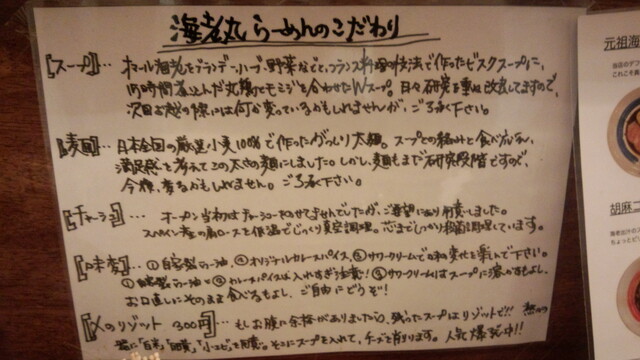 海老丸らーめんのこだわり
[スープ]… オマール海老をブランデー、ハーブ、野菜などと、フランス料理の技法で作ったビスクスープに、
時間煮込んだ丸鶏とモミジを合わせたWスープ。日々研究を重ね改良してますので、
次回お越の際には何か変っているかもしれませんが、ご了承下さい。
[麺]… 日本全国の厳選小麦100%で作ったがっしり太麺。スープとの絡みと食べ応え、
満足感を考えてこの太さの麺にしました。しかし、麺もまだ研究段階ですので、
今後、変るかもしれません。ご了承下さい。
[チャーシュー]… オープン当初はチャーシューをのせてませんでしたが、ご要望により用意しました。
スペイン産の肩ロースを低温でじっくり真空調理。芯までしっかり殺菌調理しています。
[味変]… ①自家製らー油、②オリジナルカレースパイス、③サワークリームで味の変化を楽しんで下さい。
①自家製らー油と②カレースパイスは入れすぎ注意!③サワークリームはスープに溶かすもよし、
お口直しにそのまま食べるもよし、ご自由にどうぞ!
[〆のリゾット 300円]… もしお腹に余裕がありましたら、残ったスープはリゾットで!!
器に"白米""小エビ"を用意。そこにスープを入れて、チーズを削ります。人気爆発中!!
元祖海
当店のデフ
これこそ真
胡麻二
海老出汁の
ちょっとピ